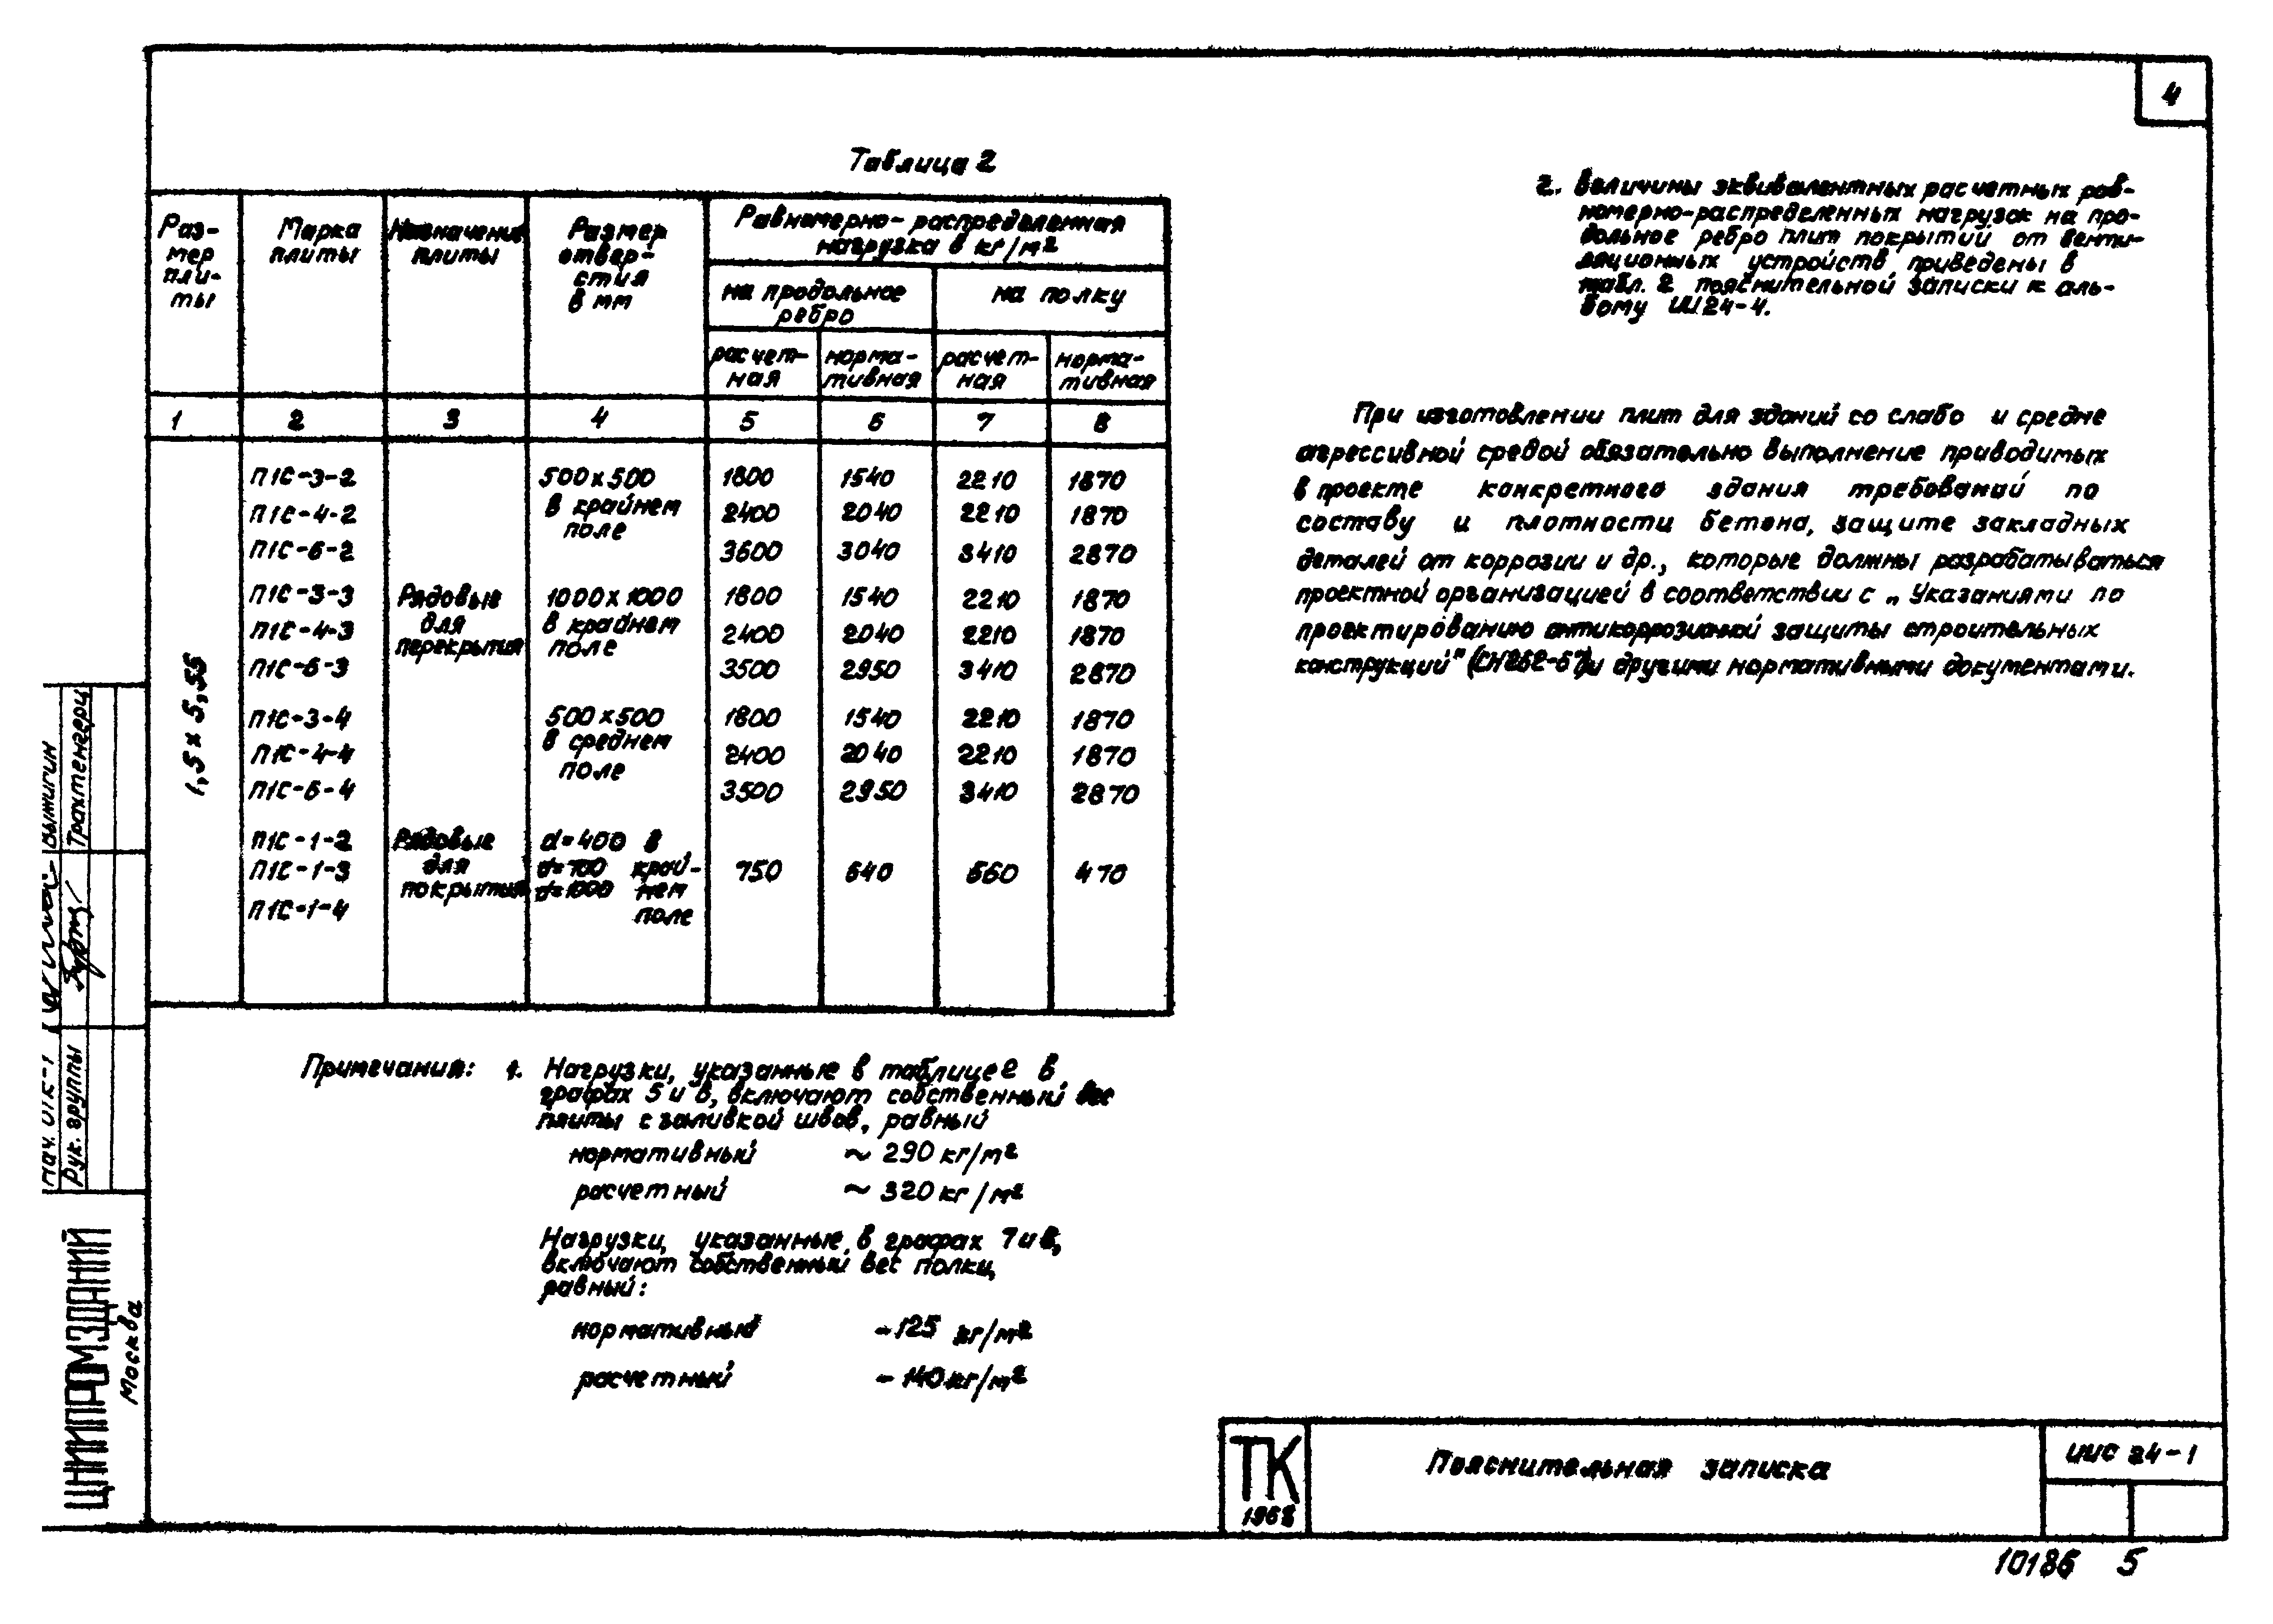 4
Таблица 2
Раз-
мер
пли-
ты
Марка
плиты
Назначение
плиты
Размер
отвер-
стия
в мм
Равномерно-распределенная
нагрузка в кг/м²
на продольное
ребро
на полку
расчет-
ная
норма-
тивная
расчет-
ная
норма-
тивная
1 2 3 4 5 6 7 8
1,5 х 5,55
П1С-3-2 500х500 1800 1540 2210 1870
в крайнем
П1С-4-2 2400 2040 2210 1870
поле
П1С-6-2 3600 3040 3410 2870
П1С-3-3 Рядовые 1000х1000 1800 1540 2210 1870
П1С-4-3 для в крайнем 2400 2040 2210 1870
перекрытия поле
П1С-6-3 3500 2950 3410 2870
П1С-3-4 500х500 1800 1540 2210 1870
в среднем
П1С-4-4 2400 2040 2210 1870
поле
П1С-6-4 3500 2950 3410 2870
П1С-1-2 Рядовые d=400 в
П1С-1-3 для d=700 край- 750 640 560 470
покрытия d=1000 нем
П1С-1-4 поле
Примечания: 1. Нагрузки, указанные в таблице 2 в
графах 5 и 6, включают собственный вес
плиты с заливкой швов, равный
нормативный ~ 290 кг/м²
расчетный ~ 320 кг/м²
Нагрузки, указанные в графах 7 и 8,
включают собственный вес полки,
равный:
нормативный - 125 кг/м²
расчетный - 140 кг/м²
2. Величины эквивалентных расчетных рав-
номерно-распределенных нагрузок на про-
дольное ребро плит покрытий от венти-
ляционных устройств приведены в
табл. 2 пояснительной записки к аль-
бому ИИ24-4.
При изготовлении плит для зданий со слабо и средне
агрессивной средой обязательно выполнение приводимых
в проекте конкретного здания требований по
составу и плотности бетона, защите закладных
деталей от коррозии и др., которые должны разрабатываться
проектной организацией в соответствии с „Указаниями по
проектированию антикоррозионной защиты строительных
конструкций" (СН262-67) и другими нормативными документами.
Нач. ОТК-1 Выжигин
Рук. группы Трахтенгерц
ЦНИИПРОМЗДАНИЙ
Москва
ТК
1968
Пояснительная записка
ИИС 24-1
10186 5